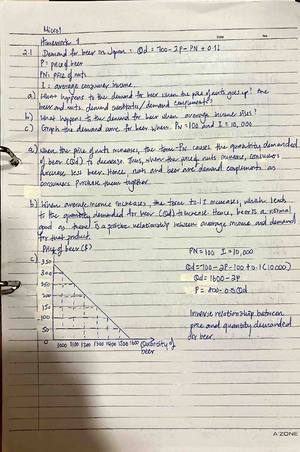 Micro1
Homework 1
Date No.
2.1 Demand for beer in Japan : Qd = 700 - 2P - PN + 0.1I
P = price of beer
PN = price of nuts
I = average consumer income
a) What happens to the demand for beer when the price of nuts goes up? Are
beer and nuts demand substitutes / demand complements?
b) What happens to the demand for beer when average income rises?
c) Graph the demand curve for beer when PN = 100 and I = 10,000
a) When the price of nuts increases, the term -PN causes the quantity demanded
of beer (Qd) to decrease. Thus, when the price of nuts increase, consumers
purchase less beer. Hence, nuts and beer are demand complements as
consumers purchase them together.
b) When average income increases, the term 0.1 I increases, which leads
to the quantity demanded for beer (Qd) to increase. Hence, beer is a normal
good as there is a positive relationship between average income and demand
for that product.
c) Price of beer ($)
350
300
250
200
150
100
50
0 1000 1100 1200 1300 1400 1500 1600 Quantity of
beer
PN = 100 I = 10,000
Qd = 700 - 2P - 100 + 0.1 (10,000)
Qd = 1600 - 2P
P = 800 - 0.5Qd
Inverse relationship between
price and quantity demanded
for beer.
A'ZONE